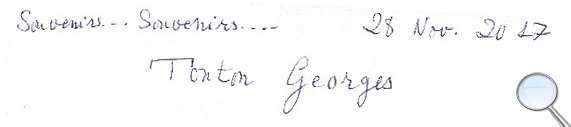 Souvenirs... Souvenirs.... 28 Nov. 2017
Tonton Georges